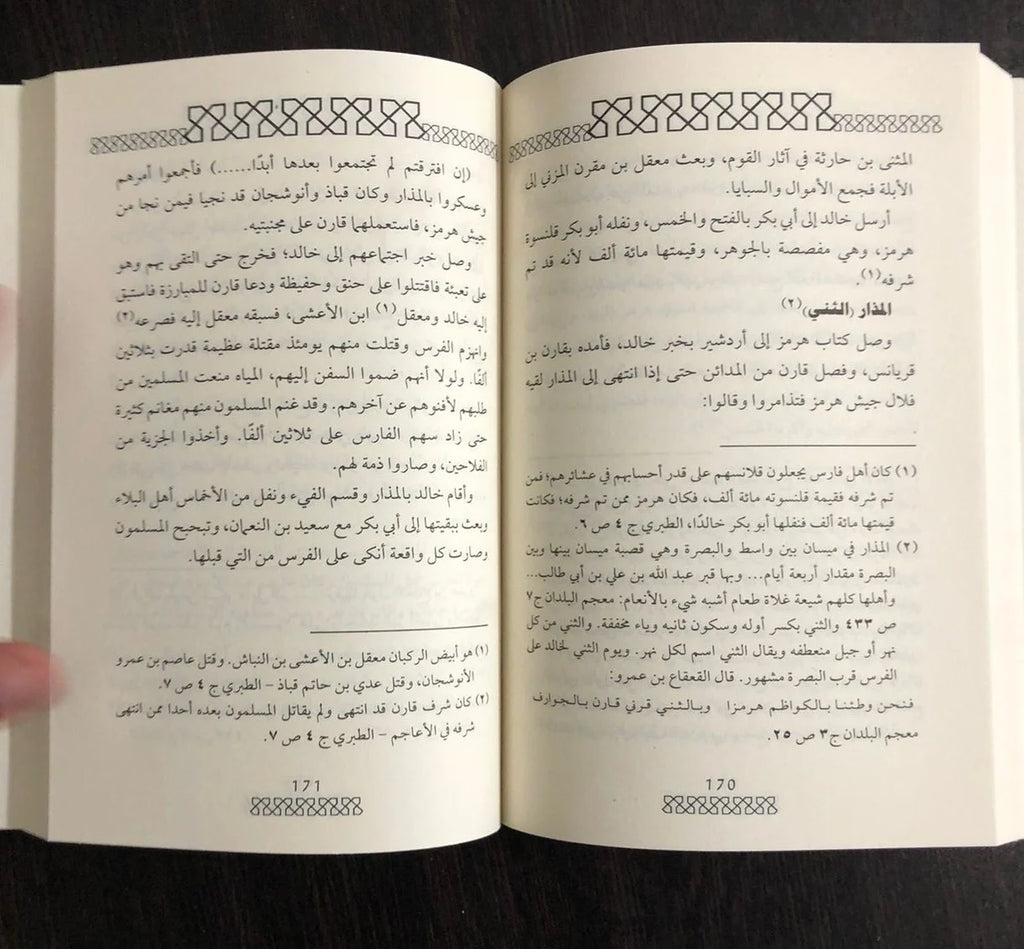 المثنى بن حارثة في آثار القوم، وبعث معقل بن مقرن المزني إلى
الأبلة فجمع الأموال والسبايا.
أرسل خالد إلى أبي بكر بالفتح والخمس، ونفله أبو بكر قلنسوة
هرمز، وهي مفصصة بالجوهر، وقيمتها مائة ألف لأنه قد تم
شرفه(١).
المذار (الثني)(٢)
وصل كتاب هرمز إلى أردشير بخبر خالد، فأمده بقارن بن
قريانس، وفصل قارن من المدائن حتى إذا انتهى إلى المذار لقيه
فلال جيش هرمز فتذامروا وقالوا:
(١) كان أهل فارس يجعلون قلانسهم على قدر أحسابهم في عشائرهم؛ فمن
تم شرفه فقيمة قلنسوته مائة ألف، فكان هرمز ممن تم شرفه؛ فكانت
قيمتها مائة ألف فنفلها أبو بكر خالدًا، الطبري ج ٤ ص ٦.
(٢) المذار في ميسان بين واسط والبصرة وهي قصبة ميسان بينها وبين
البصرة مقدار أربعة أيام... وبها قبر عبد الله بن علي بن أبي طالب...
وأهلها كلهم شيعة غلاة طعام أشبه شيء بالأنعام: معجم البلدان ج٧
ص ٤٣٣ والثني بكسر أوله وسكون ثانيه وياء مخففة. والثني من كل
نهر أو جبل منعطفه ويقال الثني اسم لكل نهر. ويوم الثني لخالد على
الفرس قرب البصرة مشهور. قال القعقاع بن عمرو:
فنحن وطئنا بالكواظم هرمزا وبالثني قرني قارن بالجوارف
معجم البلدان ج٣ ص ٢٥.
170
(إن افترقتم لم تجتمعوا بعدها أبدًا......) فأجمعوا أمرهم
وعسكروا بالمذار وكان قباذ وأنوشجان قد نجيا فيمن نجا من
جيش هرمز، فاستعملهما قارن على مجنبتيه.
وصل خبر اجتماعهم إلى خالد؛ فخرج حتى التقى بهم وهو
على تعبئة فاقتتلوا على حنق وحفيظة ودعا قارن للمبارزة فاستبق
إليه خالد ومعقل(١) ابن الأعشى، فسبقه معقل إليه فصرعه(٢)
وانهزم الفرس وقتلت منهم يومئذ مقتلة عظيمة قدرت بثلاثين
ألفًا. ولولا أنهم ضموا السفن إليهم، المياه منعت المسلمين من
طلبهم لأفنوهم عن آخرهم. وقد غنم المسلمون منهم مغانم كثيرة
حتى زاد سهم الفارس على ثلاثين ألفًا. وأخذوا الجزية من
الفلاحين، وصاروا ذمة لهم.
وأقام خالد بالمذار وقسم الفيء ونفل من الأخماس أهل البلاء
وبعث ببقيتها إلى أبي بكر مع سعيد بن النعمان، وتبحبح المسلمون
وصارت كل واقعة أنكى على الفرس من التي قبلها.
(١) هو أبيض الركبان معقل بن الأعشى بن النباش. وقتل عاصم بن عمرو
الأنوشجان، وقتل عدي بن حاتم قباذ – الطبري ج ٤ ص ٧.
(٢) كان شرف قارن قد انتهى ولم يقاتل المسلمون بعده أحدا ممن انتهى
شرفه في الأعاجم – الطبري ج ٤ ص ٧.
171